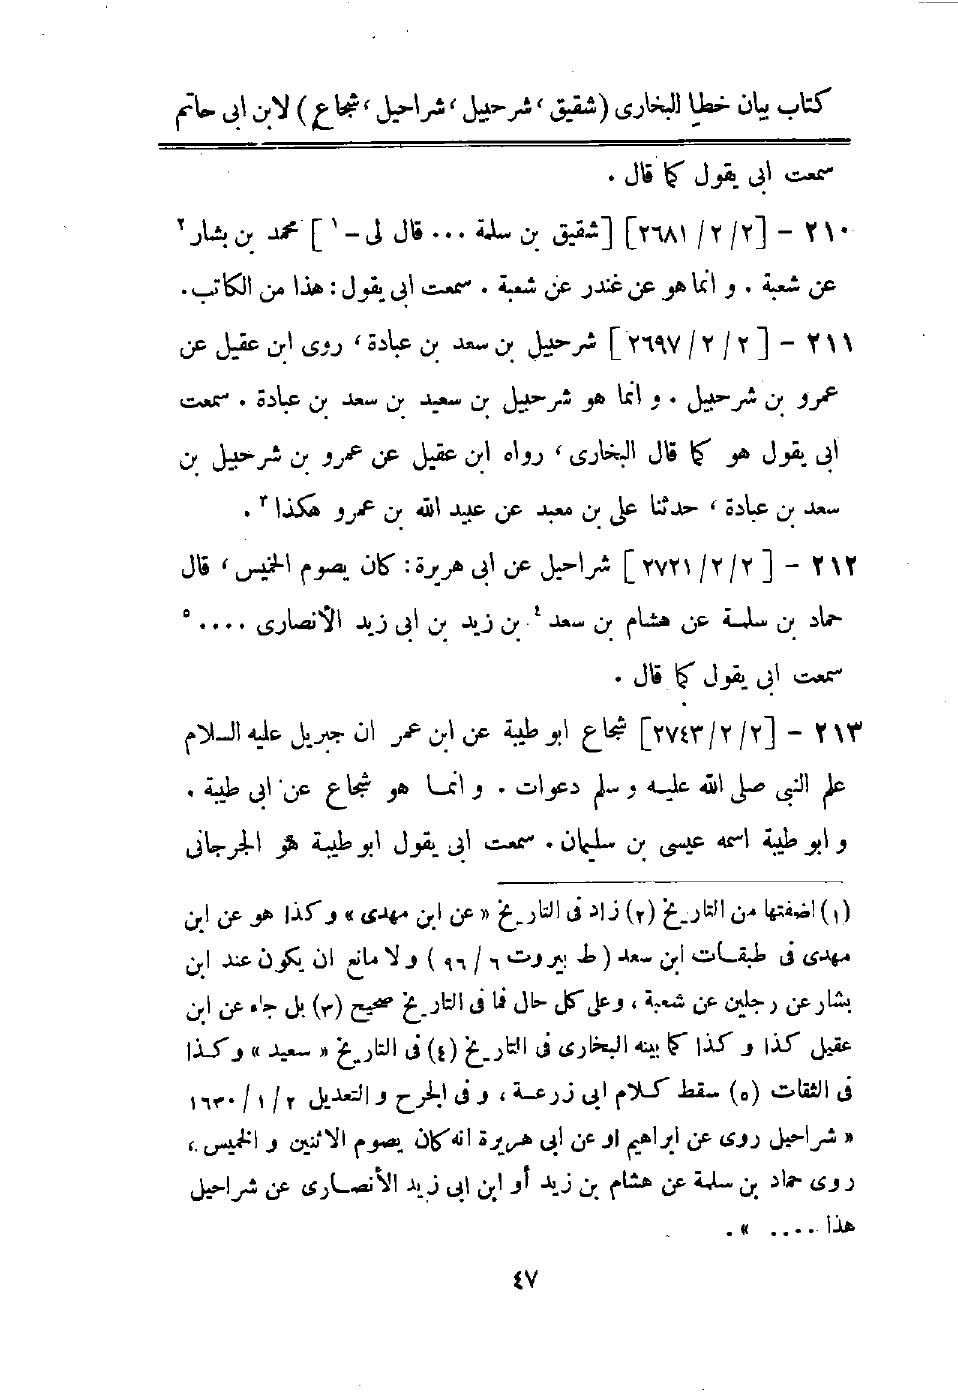 كتاب بيان خطأ البخارى (شقيق، شرحبيل، شراحيل، شجاع) لابن ابى حاتم
سمعت ابى يقول كما قال .
٢١٠ - [٢/٢/٢٦٨١] [شقيق بن سلمة ... قال لى -١] محمد بن بشار٢
عن شعبة . و انما هو عن غندر عن شعبة . سمعت ابى يقول : هذا من الكاتب .
٢١١ - [٢/٢/٢٦٩٧] شرحبيل بن سعد بن عبادة، روى ابن عقيل عن
عمرو بن شرحبيل . و انما هو شرحبيل بن سعيد بن سعد بن عبادة . سمعت
ابى يقول هو كما قال البخارى، رواه ابن عقيل عن عمرو بن شرحبيل بن
سعد بن عبادة، حدثنا على بن معبد عن عبيد الله بن عمرو هكذا٣ .
٢١٢ - [٢/٢/٢٧٢١] شراحيل عن ابى هريرة : كان يصوم الخميس، قال
حماد بن سلمة عن هشام بن سعد٤ بن زيد بن ابى زيد الأنصارى ....٥
سمعت ابى يقول كما قال .
٢١٣ - [٢/٢/٢٧٤٣] شجاع ابو طيبة عن ابن عمر ان جبريل عليه السلام
علم النبى صلى الله عليه و سلم دعوات . و انما هو شجاع عن ابى طيبة .
و ابو طيبة اسمه عيسى بن سليمان . سمعت ابى يقول ابو طيبة هو الجرجانى
(١) اضفتها من التاريخ (٢) زاد فى التاريخ « عن ابن مهدى » و كذا هو عن ابن
مهدى فى طبقات ابن سعد ( ط بيروت ٦/ ٩٦ ) و لا مانع ان يكون عند ابن
بشار عن رجلين عن شعبة، و على كل حال فما فى التاريخ صحيح (٣) بل جاء عن ابن
عقيل كذا و كذا كما بينه البخارى فى التاريخ (٤) فى التاريخ « سعيد » و كذا
فى الثقات (٥) سقط كلام ابى زرعة، و فى الجرح و التعديل ٢ /١ /١٦٣٠
« شراحيل روى عن ابراهيم او عن ابى هريرة انه كان يصوم الاثنين و الخميس،
روى حماد بن سلمة عن هشام بن زيد أو ابن ابى زيد الأنصارى عن شراحيل
هذا .... » .
٤٧